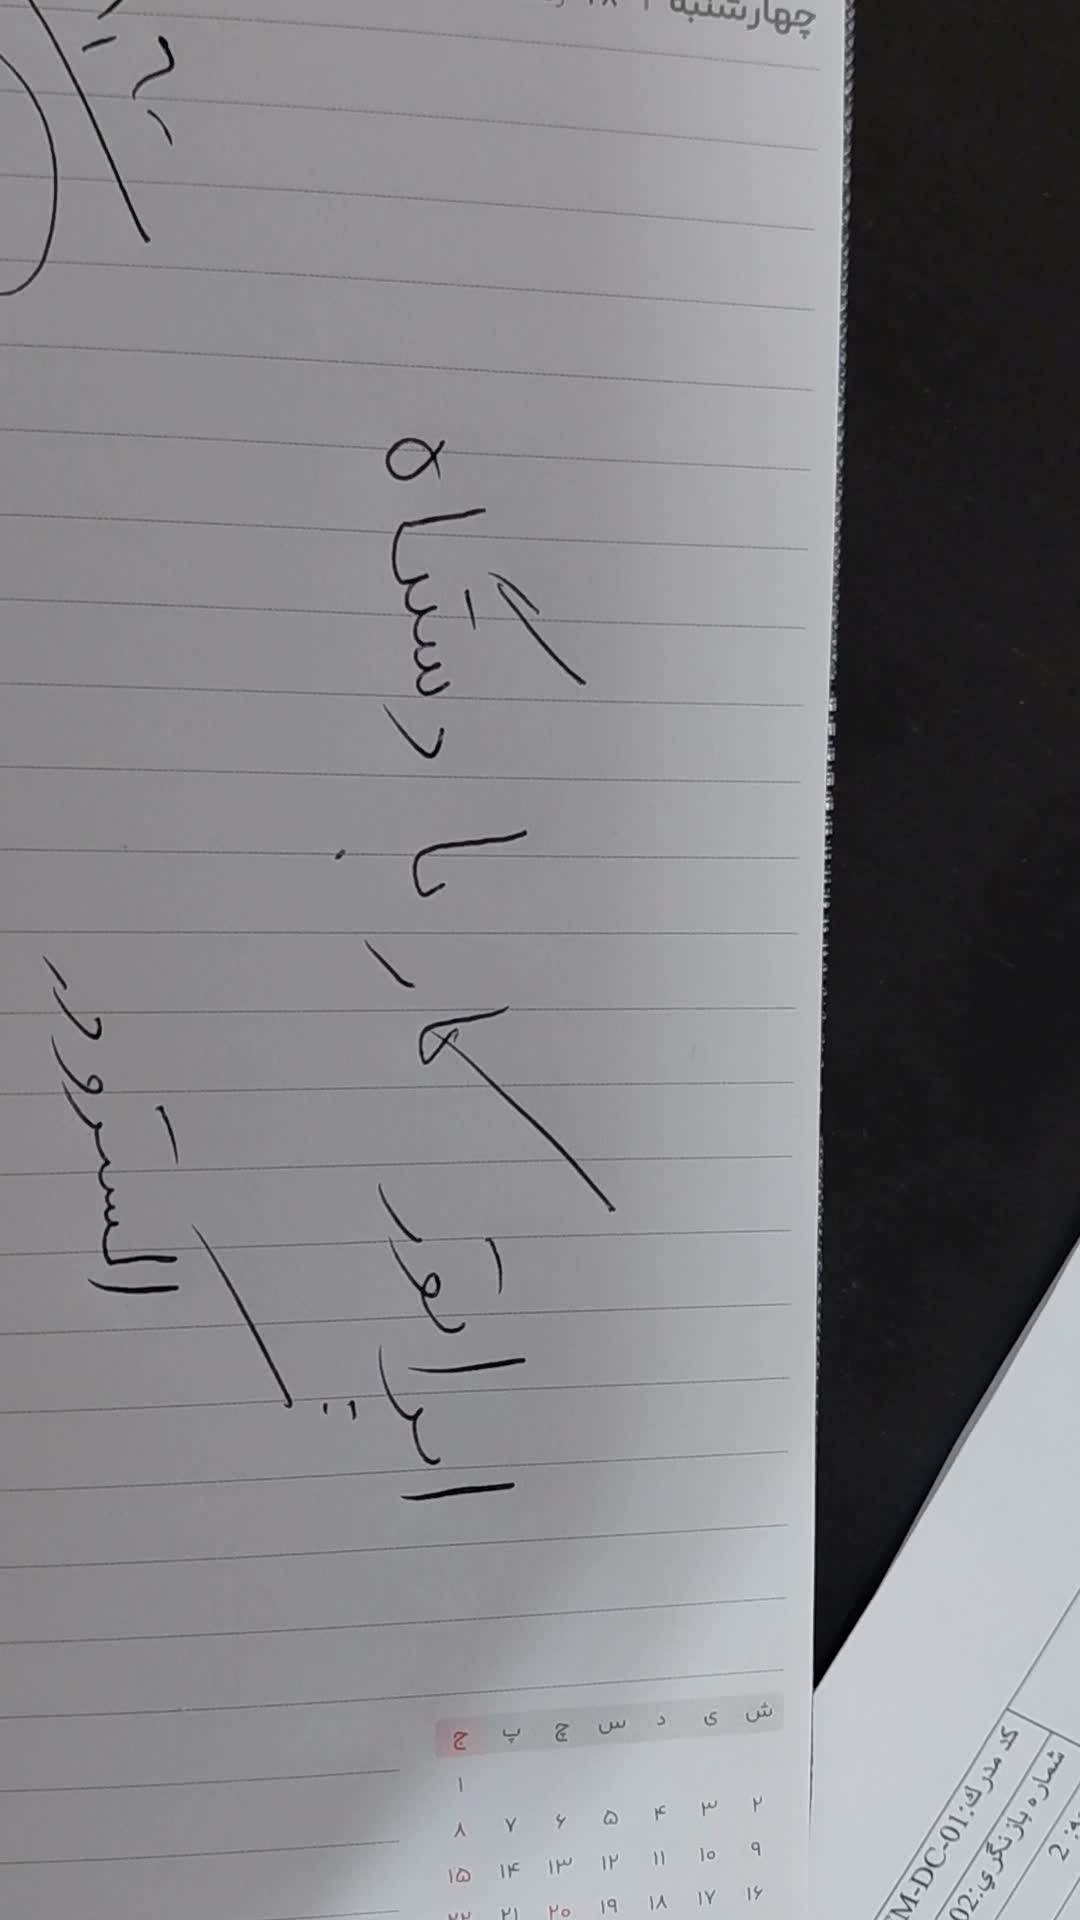 چهارشنبه
اپراتور کار با دستگاه
اکسترودر
ش ی د س چ پ ج
۱
۲ ۳ ۴ ۵ ۶ ۷ ۸
۹ ۱۰ ۱۱ ۱۲ ۱۳ ۱۴ ۱۵
۱۶ ۱۷ ۱۸ ۱۹ ۲۰ ۲۱ ۲۲
کد مدرك:M-DC-01
شماره بازنگري:02